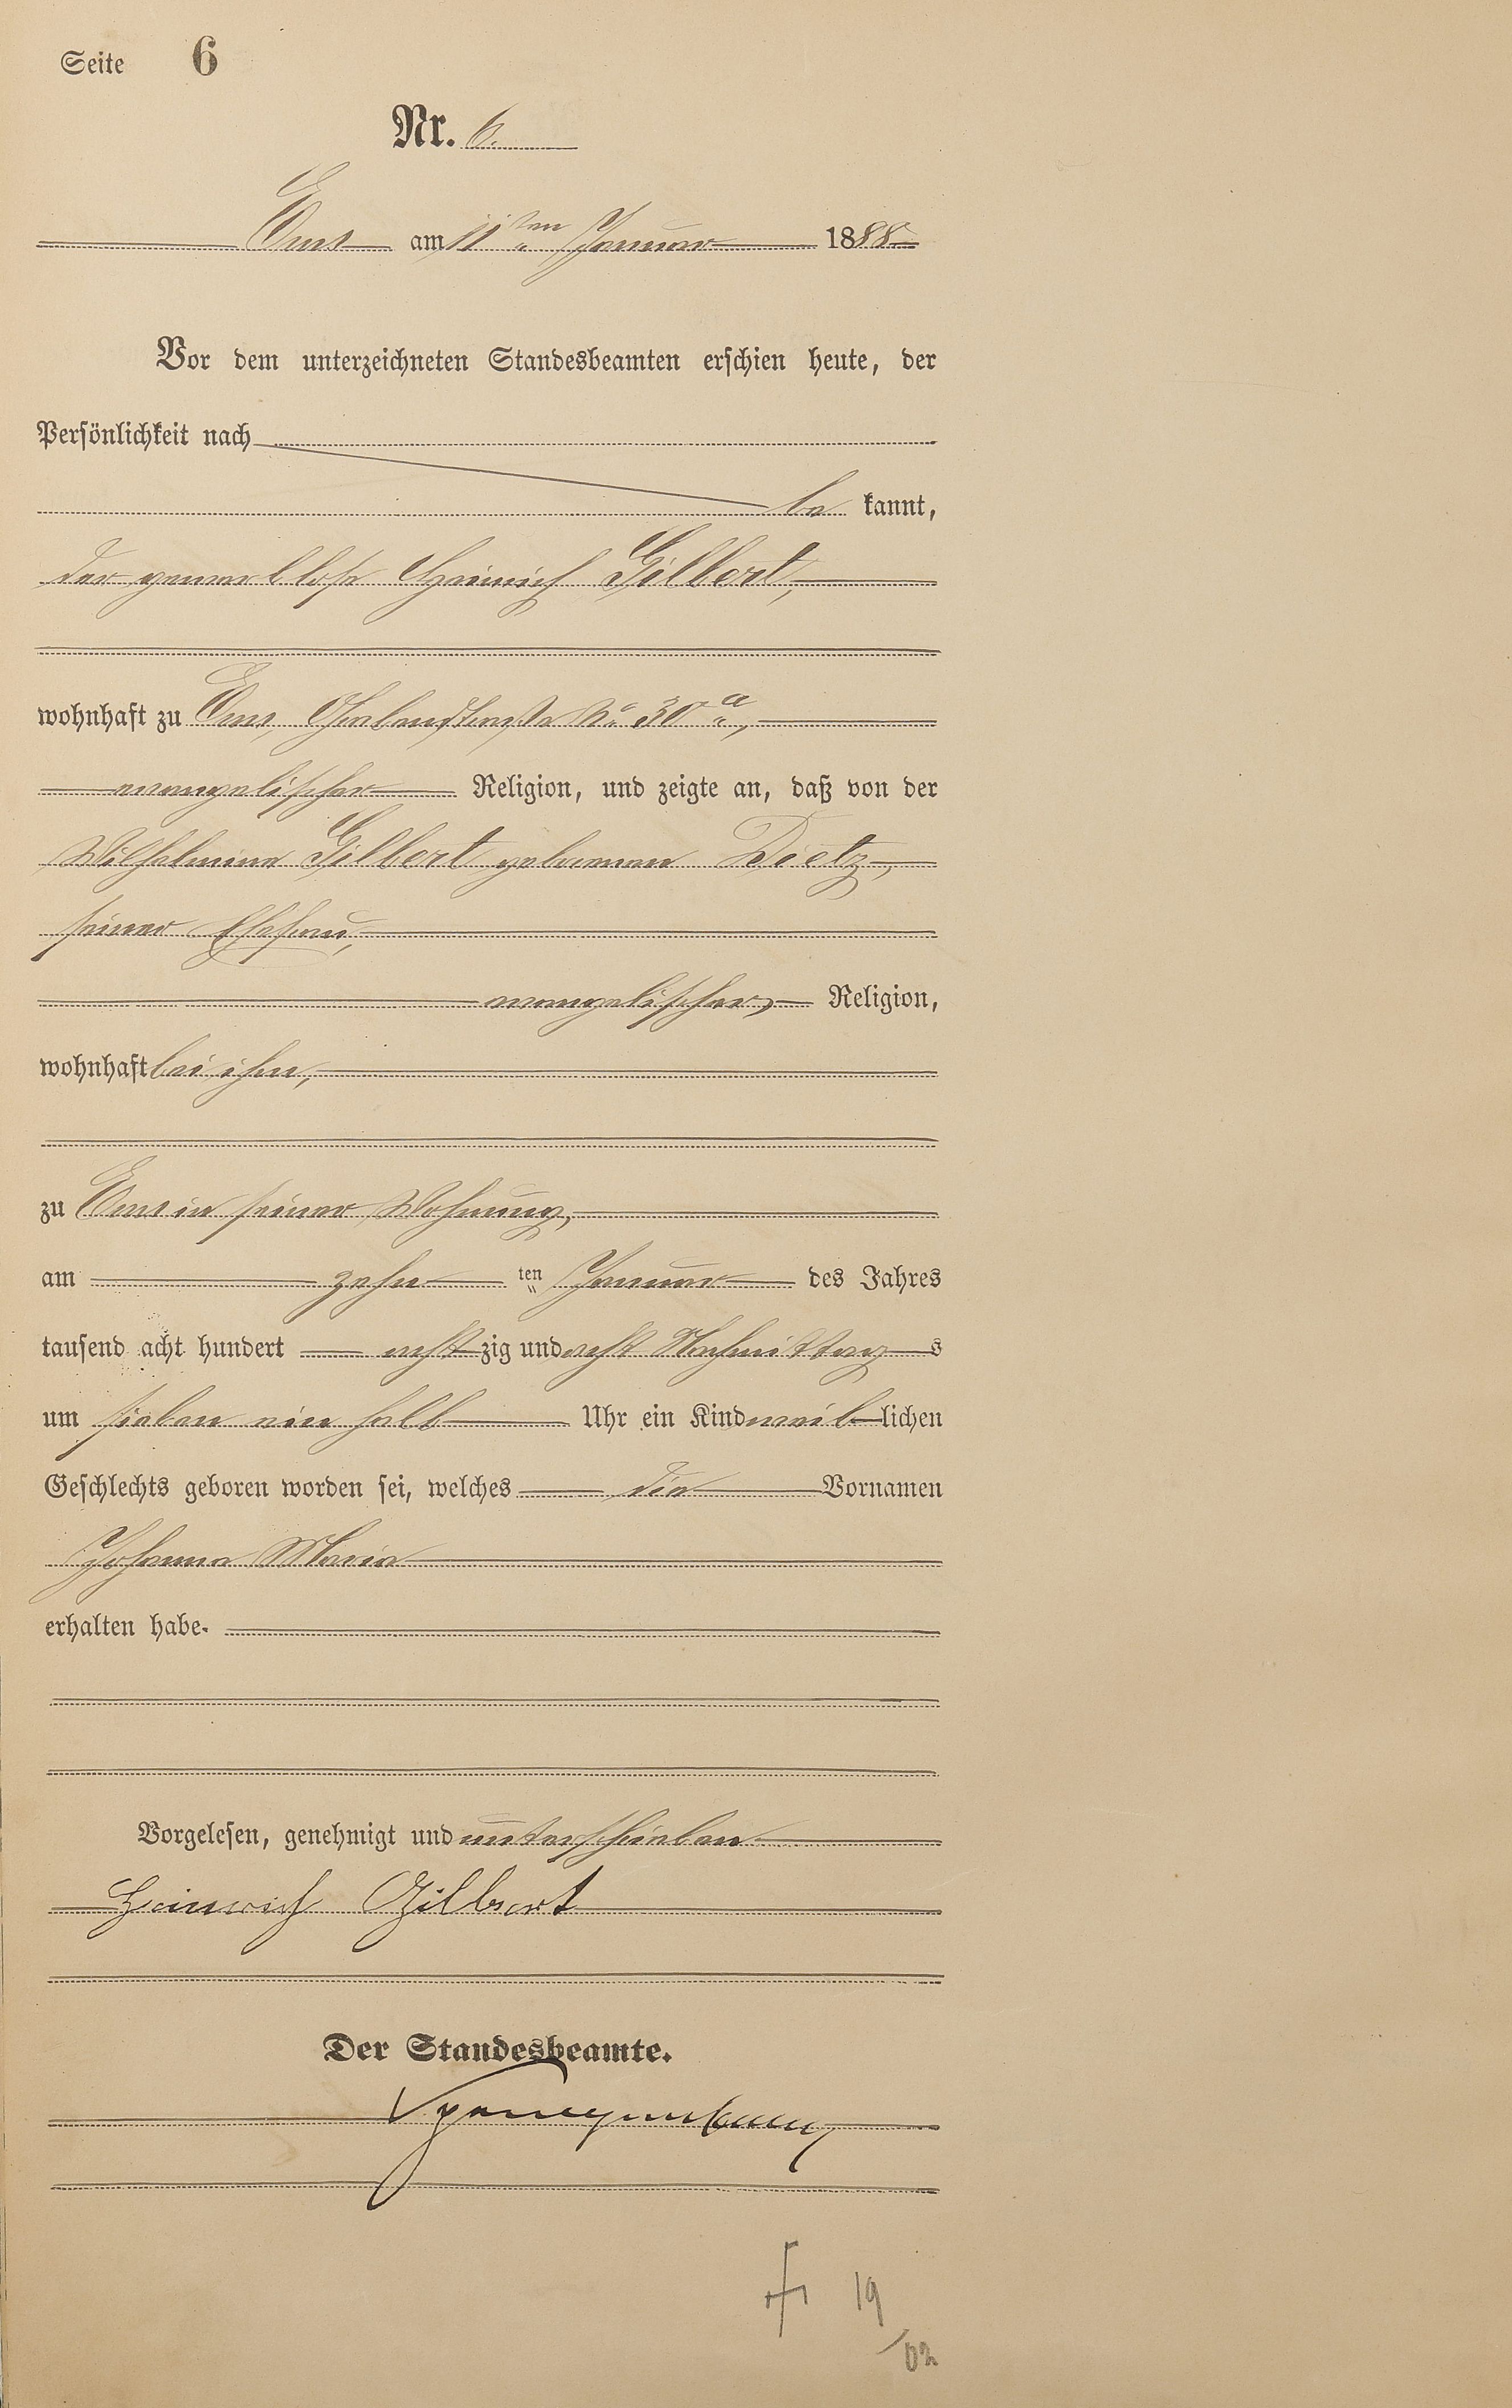 Seite 6
Nr. 6.
Ems am 11ten Januar 1888
Vor dem unterzeichneten Standesbeamten erschien heute, der
Persönlichkeit nach
be kannt,
der gewerblose Heinrich Gilbert,
wohnhaft zu Ems, No 30a,
evangelischer Religion, und zeigte an, daß von der
Wilhelmine Gilbert geborenen Dietz,
seiner Ehefrau,
evangelischer, Religion,
wohnhaft bei ihm,
zu Ems in seiner Wohnung,
am zehn ten Januar des Jahres
tausend acht hundert acht zig und acht Nachmittag s
um sieben ein halb Uhr ein Kind weib lichen
Geschlechts geboren worden sei, welches die Vornamen
Johanna Maria
erhalten habe.
Vorgelesen, genehmigt und unterschrieben
Heinrich Gilbert
Der Standesbeamte.
† 19
/02